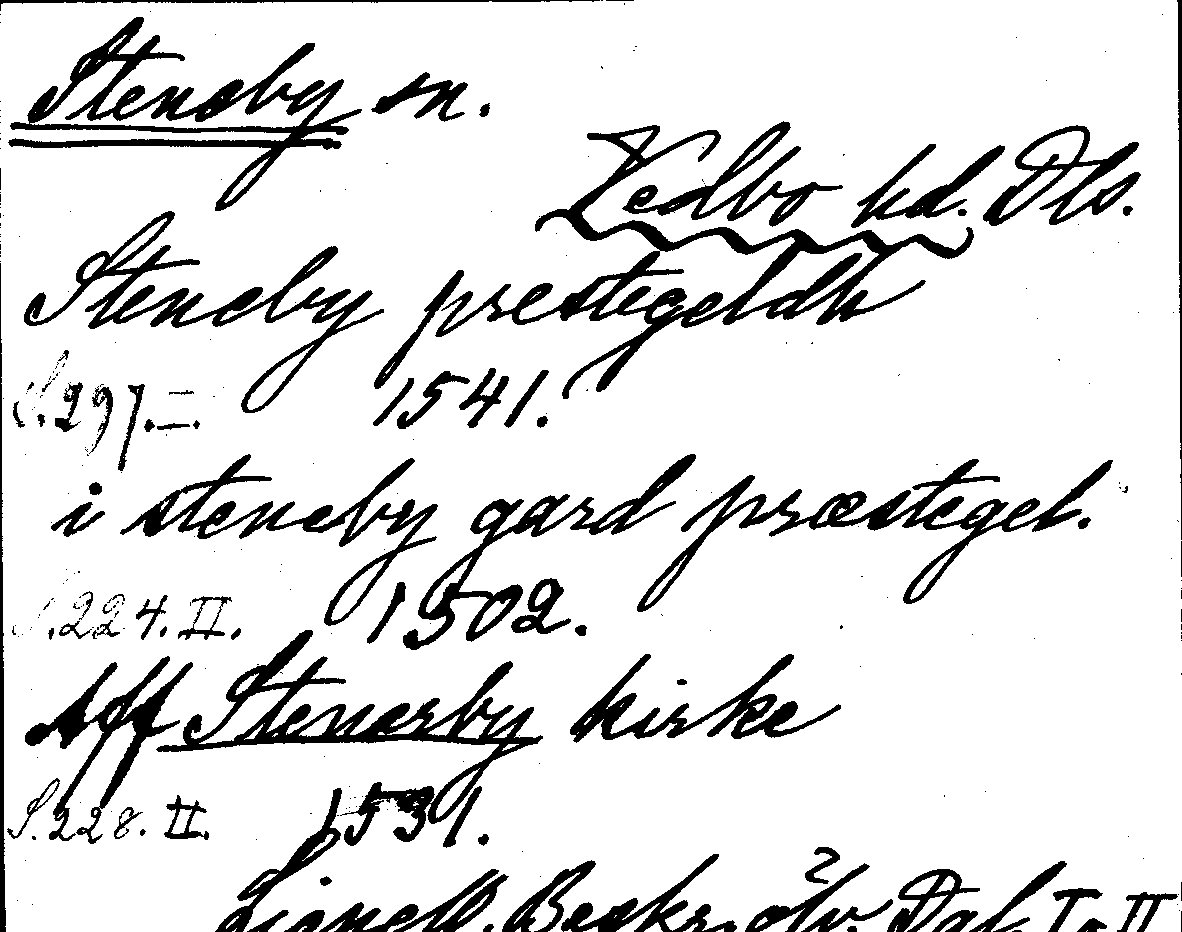 Steneby sn.
Vedbo hd. Dls.
Steneby prestegeldh
S. 297. I. 1541.
i steneby gard præstegel.
S. 224. II. 1502.
Aff Stenersby kirke
S. 228. II. 1531.
Lignell. Beskr. ölv. Dal. I o II